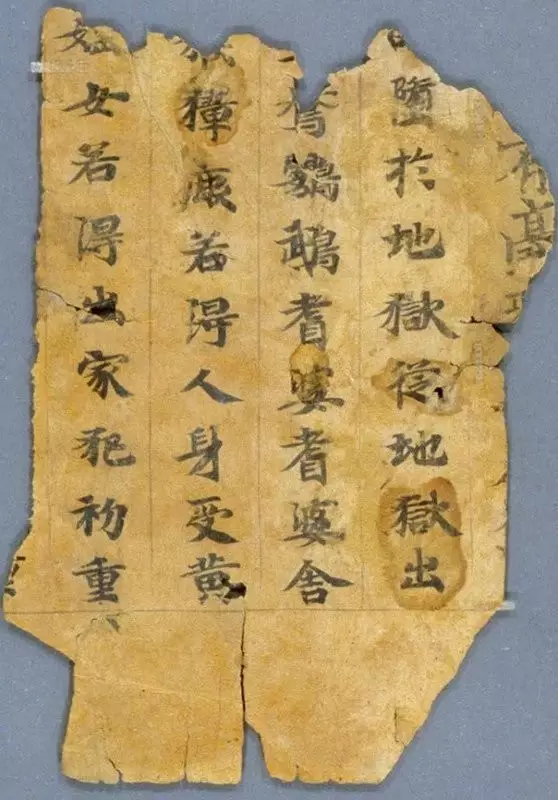 有高
墮於地獄從地獄出
鴦鸚鵡耆婆耆婆舍
獐鹿若得人身受黃
婬女若得出家犯初重